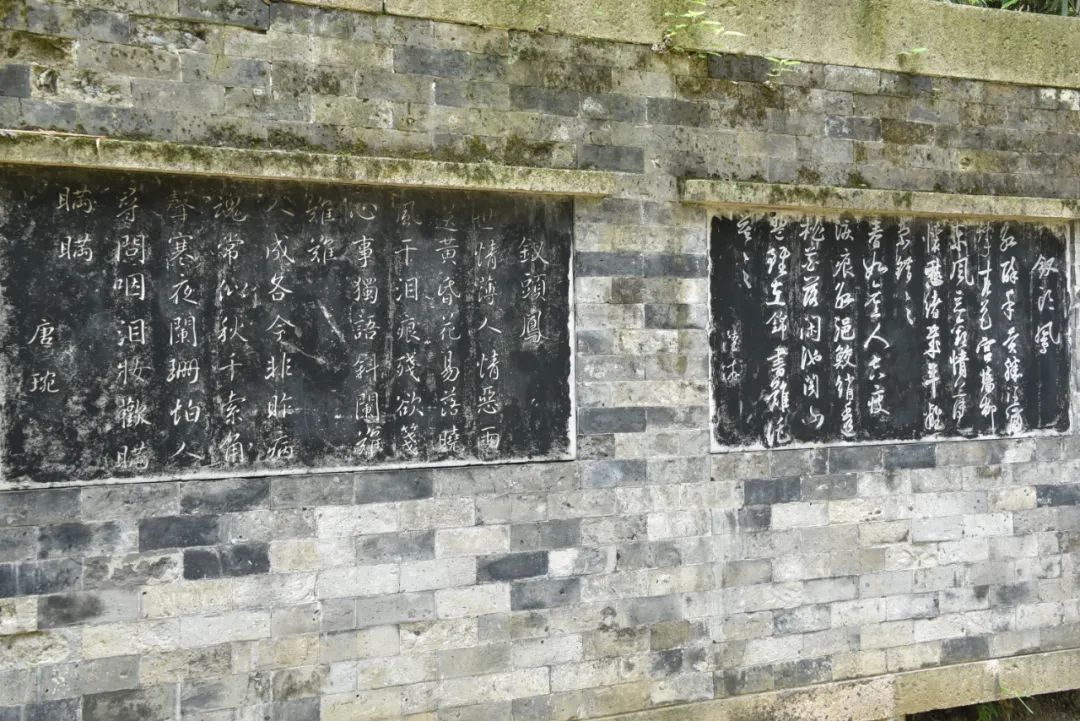 釵頭鳳
紅酥手黃縢酒滿
城春色宮牆柳
東風惡歡情薄一
懷愁緒幾年離
索錯々々
春如舊人空瘦
淚痕紅浥鮫綃透
桃花落閑池閣山
盟雖在錦書難托
莫々々
陸游
釵頭鳳
世情薄人情惡雨
送黃昏花易落曉
風干泪痕殘欲箋
心事獨語斜闌難
難難
人成各今非昨病
魂常似秋千索角
聲寒夜闌珊怕人
尋問咽泪妝歡瞞
瞞瞞
唐琬